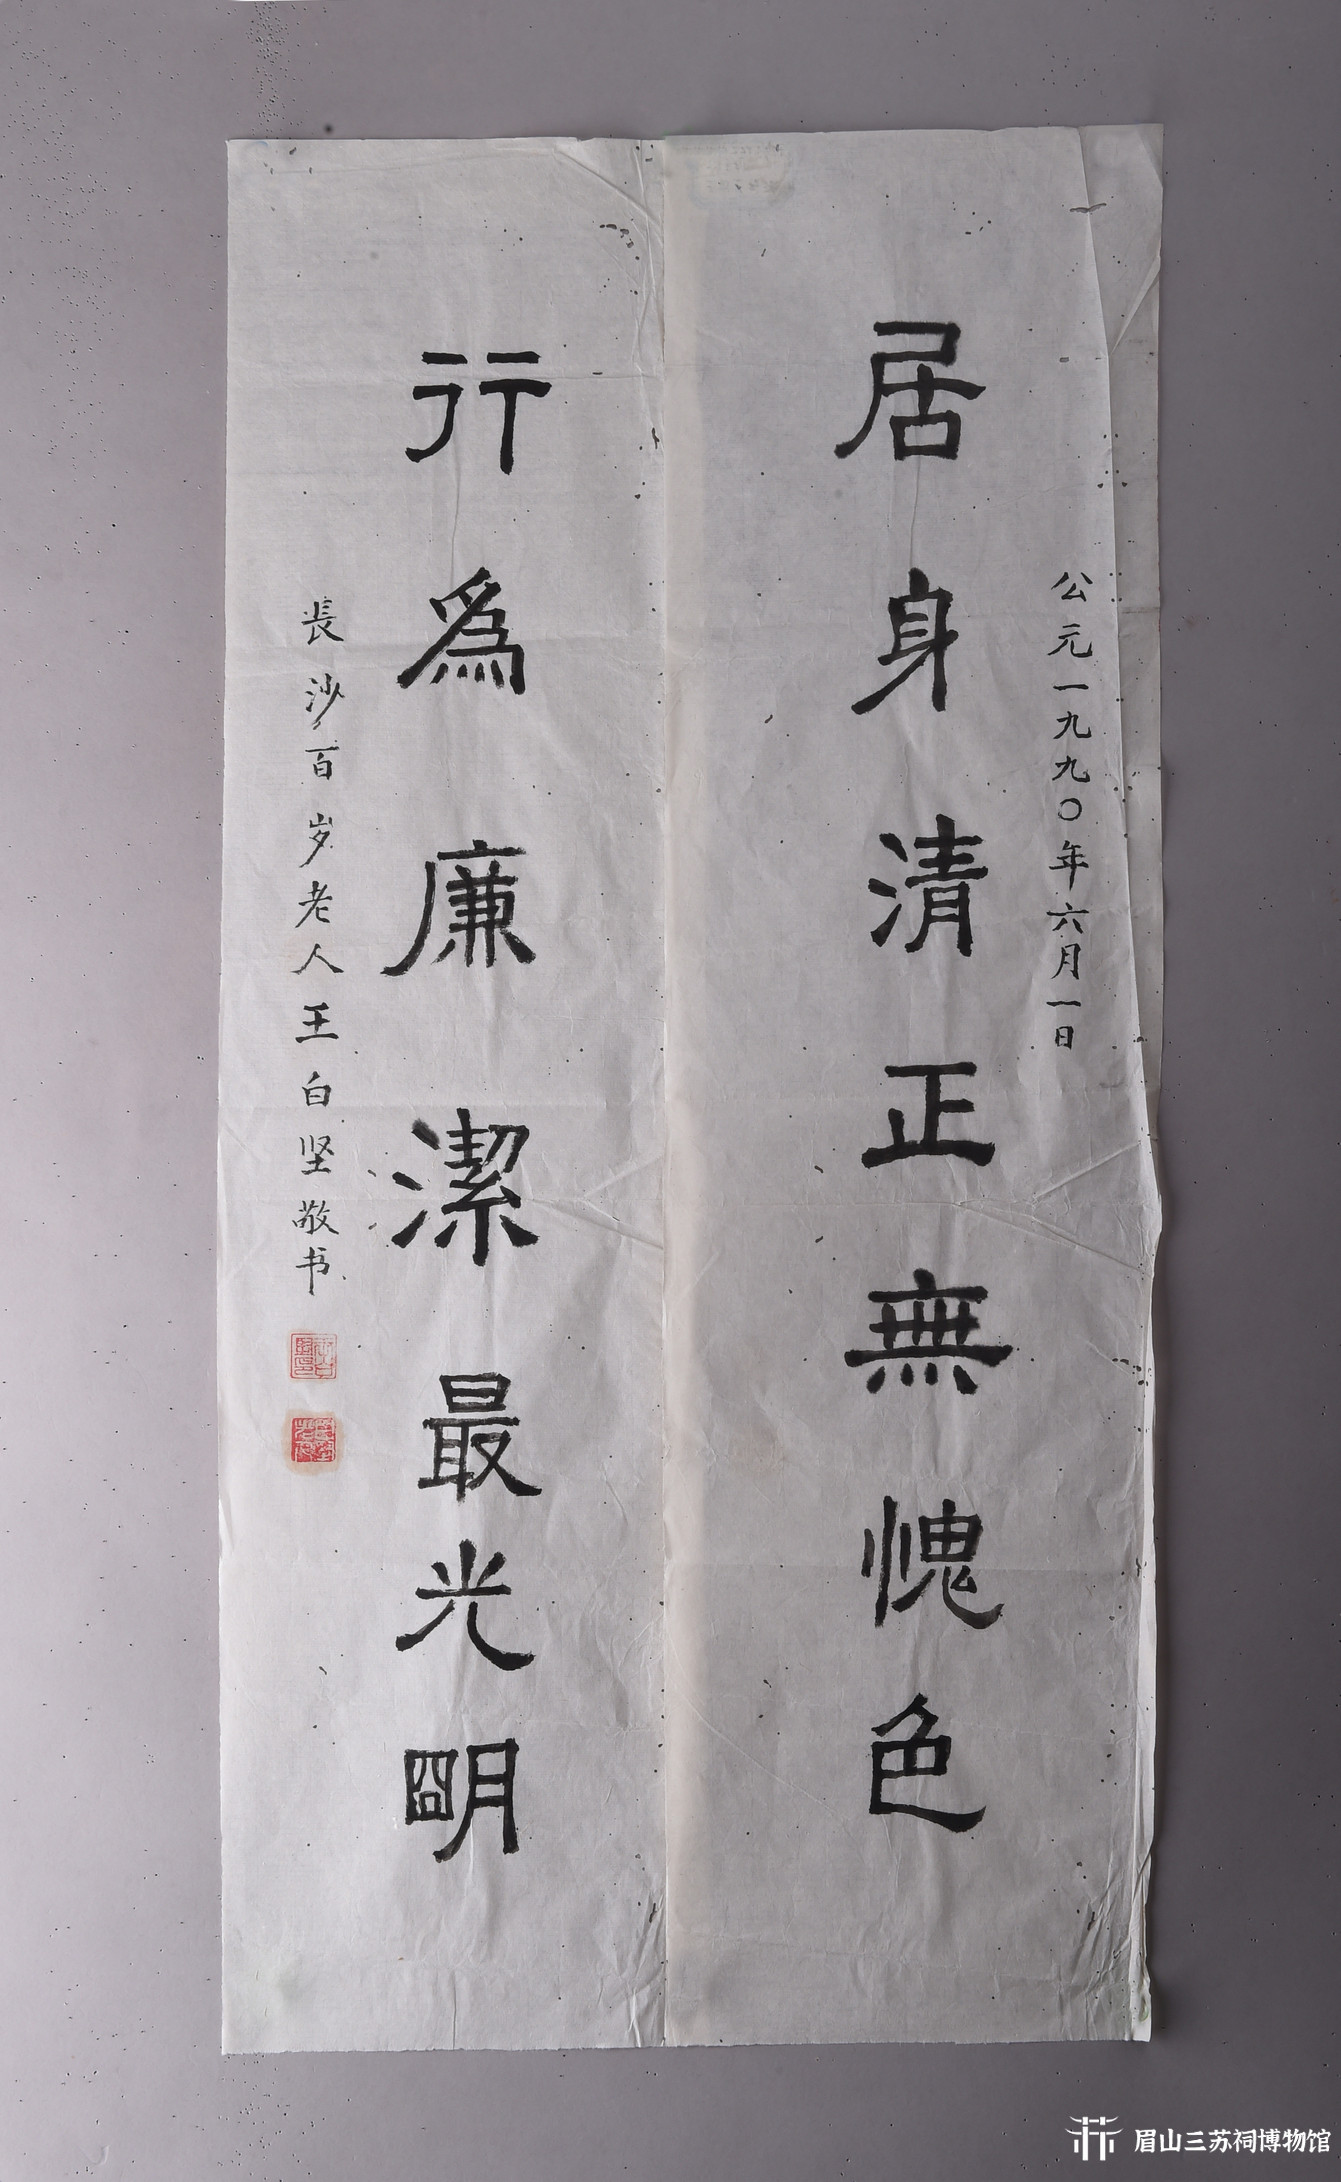 公元一九九〇年六月一日
居身清正無愧色
行為廉潔最光明
長沙百岁老人王白坚敬书
眉山三苏祠博物馆